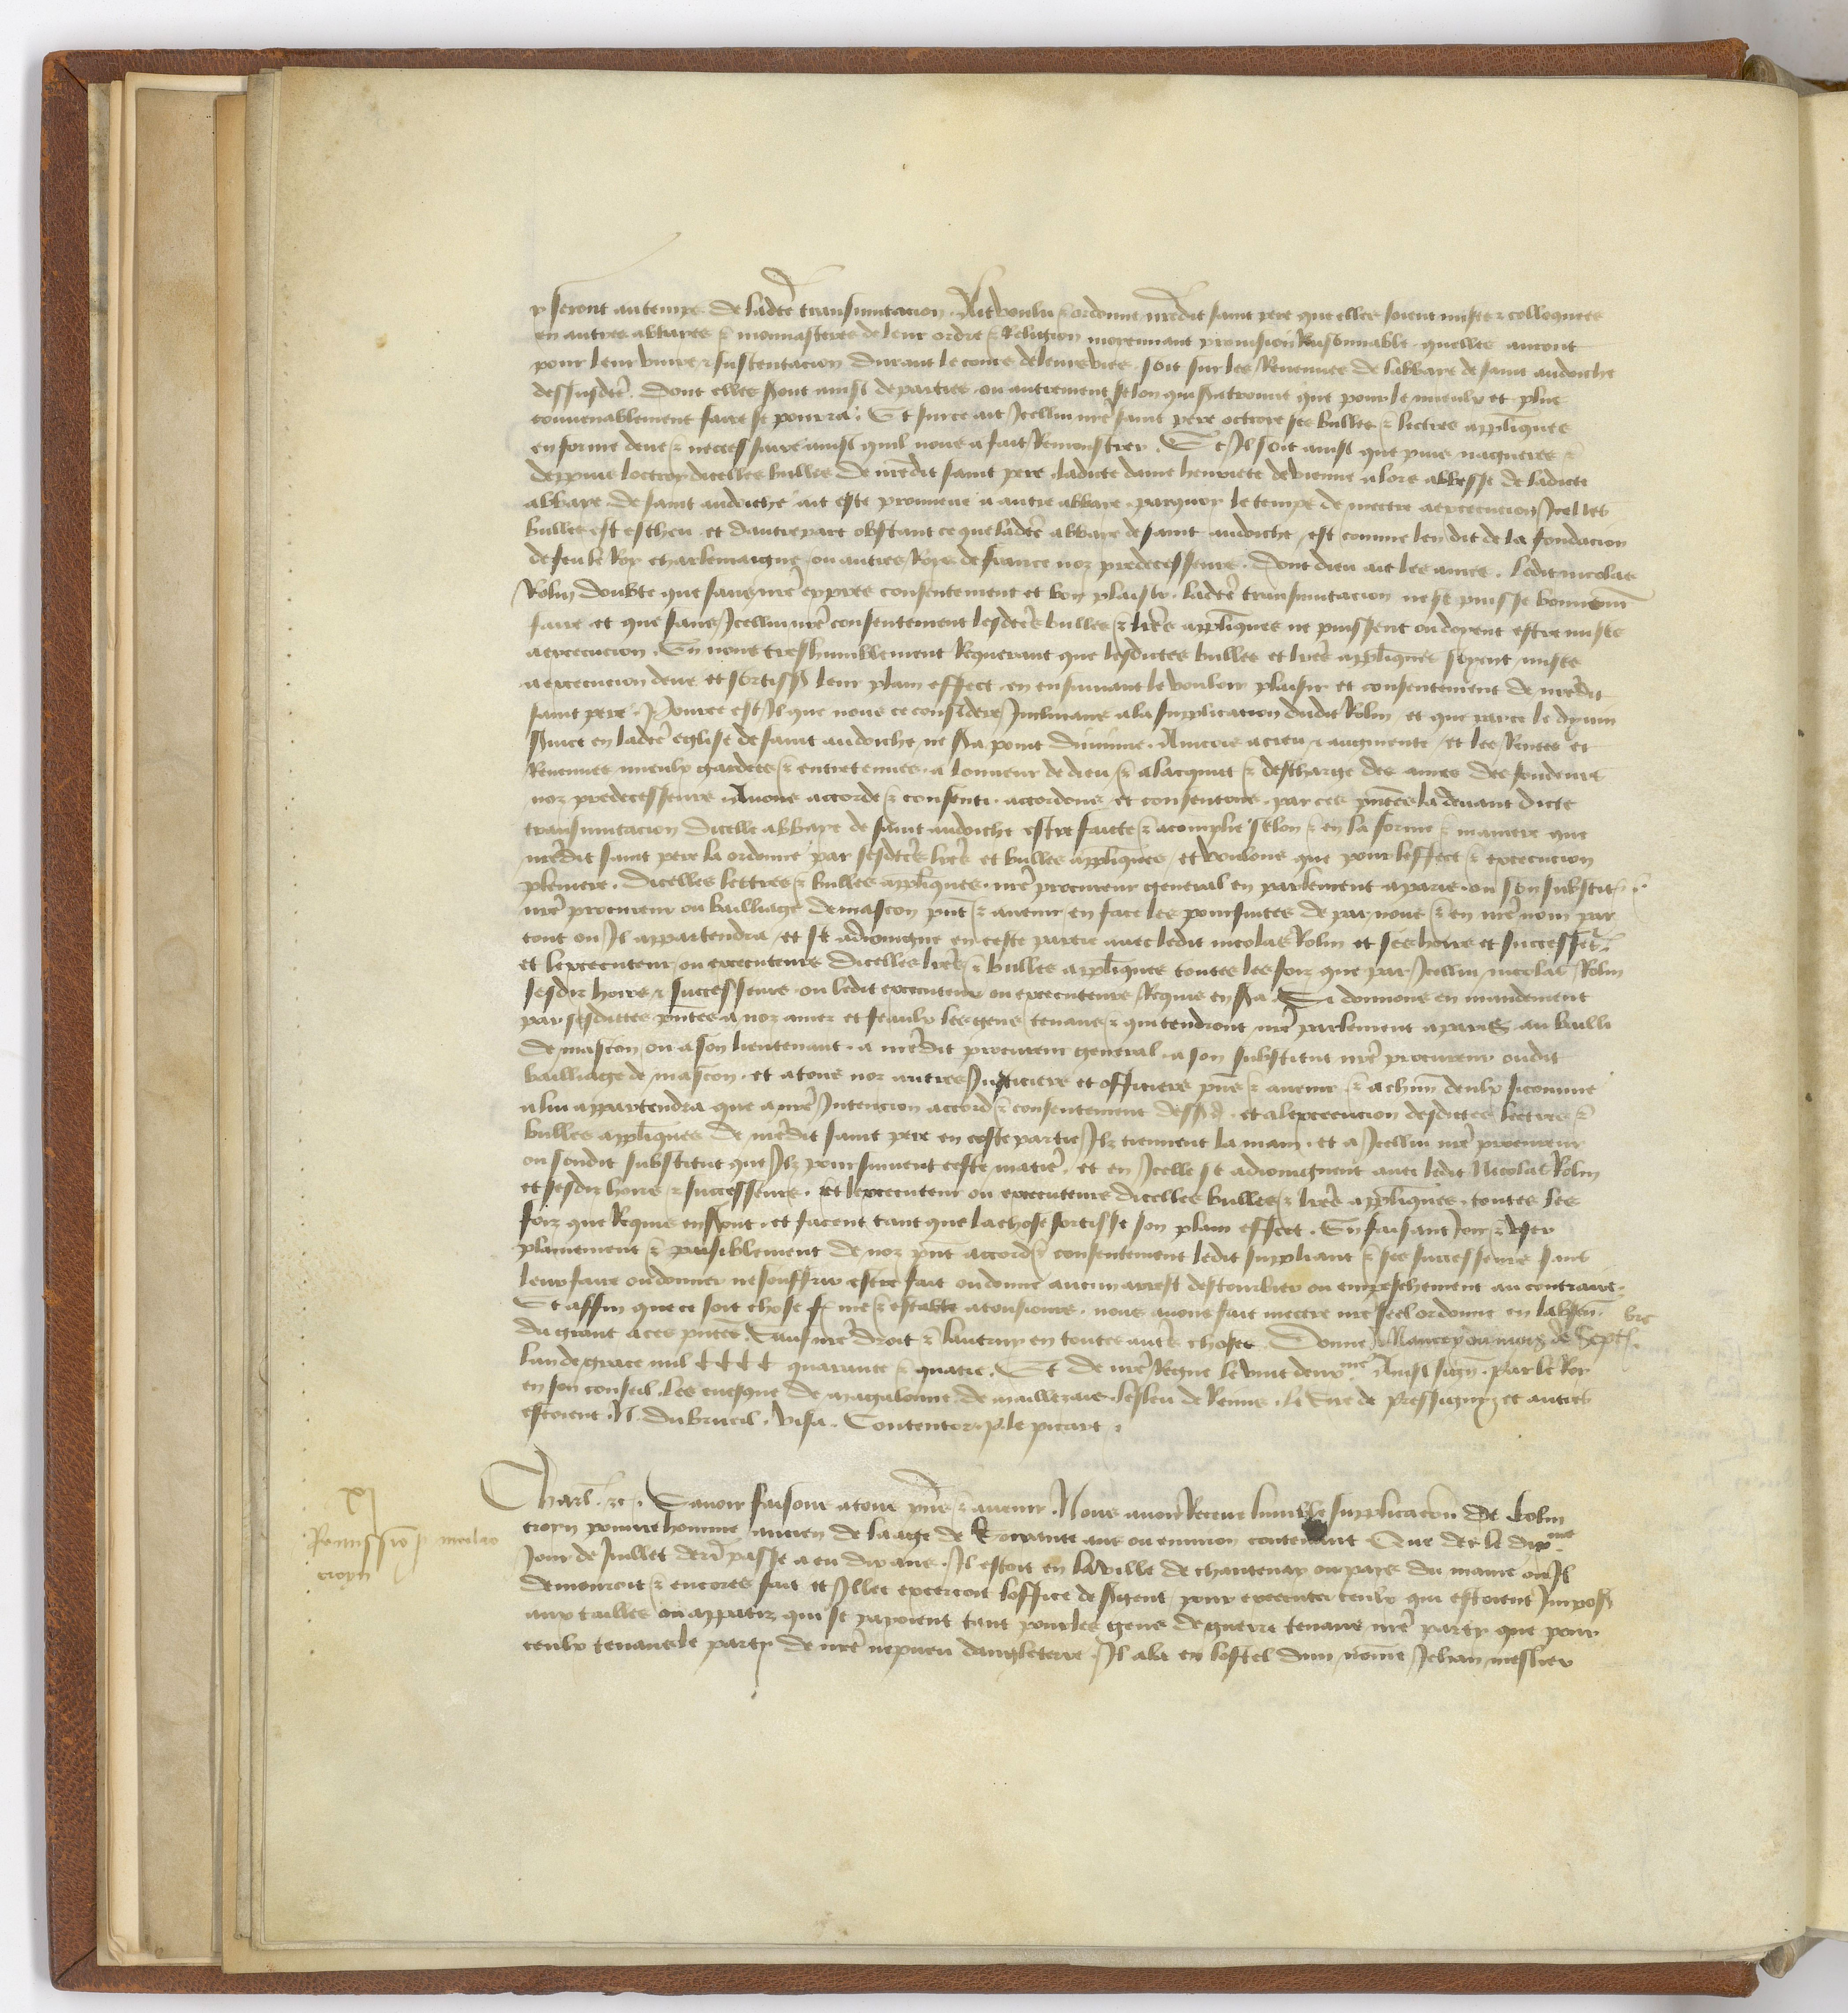 y seront au temps de ladcte transmutacion. Ait voulu & ordonne nredit saint pere que elles soient mises & colloquees
en autres abbayes & monnasteres de leur ordre & Religion moyennant provision Raisonnable quelles auront
pour leur vivre & sustentacion durant le cours de leurs vies soit sur les Revenues de labbaye de saint andoche
dessusdcte. Dont elles sont ainsi departies ou autrement selon quil trouve que pour le mieulx et plus
convenablement faire se pourra. Et sur ce ait Icellui nre saint pere octroye ses bulles & lectres appliques
en forme deue & neccessaire ainsi quil nous a fait Remonstrer. Et Il soit ainsi que puis nagueres &
deppuis loctroy dicelles bulles de nredit saint pere ladicte dame henriete de vienne alors abbesse de ladicte
abbaye de saint andoche ait este promeue a autre abbaye parquoy le temps de mectre a execucion Icelles
bulles est escheu et dautre part obstant ce que ladcte abbaye de saint andoche est comme len dit de la fondacion
de feu le Roy charlemaigne ou autres Roys de france noz predecesseurs. Dont dieu ait les ames. ledit nicolas
Rolin doubte que sans nre exprés consentement et bon plaisir ladcte transmutacion ne se puisse bonnemt
faire et que sans Icellui nre consentement lesdctes bulles & lres appliques ne puissent ou doyent estre mises
a execucion. En nous treshumblement Requerant que lesdictes bulles et lres appliques soyent mises
a execucion deue et sortissent leur plain effect en ensuivant le vouloir plaisir et consentement de nredit
saint pere. Pource est Il que nous ce considere Inclinans a la supplicacion dudit Rolin et que par ce le divin
service en ladcte eglise de saint andoche ne sera point diminue. Aincois acreu & augmente et les Rentes et
Revenues mieulx gardees & entretenues a lonneur de dieu & a lacquit & descharge des ames des fondeurs
noz predecesseurs. Avons accorde & consenti accordons et consentons par ces pntes la devant dicte
transmutacion dicelle abbaye de saint andoche estre faicte & acomplie selon & en la forme & maniere que
nredit saint pere la ordonne par sesdctes lres et bulles appliques et voulons que pour leffect & execucion
pleniere dicelles lettres & bulles appliques nre procureur general en parlement a paris ou son substitut &
nre procureur ou bailliage de mascon pnt & avenir en face les poursuites de par nous & en nre nom par
tout ou Il appartendra et se adioingne en ceste partie avec ledit nicolas Rolin et ses hoirs et successrs
et lexecuteur ou executeurs dicelles lres & bulles appliques toutes les foiz que par Icellui nicolas Rolin
sesdiz hoirs & successeurs ou ledit executeur ou executeurs Requis en sera. Si donnons en mandement
par sesdictes pntes a noz amez et feaulx les gens tenans & qui tendront nre parlement a paris au bailli
de mascon ou a son lieutenant a nredit procureur general a son substitut nre procureur oudit
bailliage de mascon et a tous noz autres Justiciers et officiers pns & avenir & a chun deulx si comme
a lui appartendra que a nre Intencion accord & consentement dessusd. et a lexecucion desdictes lectres &
bulles appliques de nredit saint pere en ceste partie Ilz tiennent la main et a Icellui nre procureur
ou sondit substitut que Ilz poursuivent ceste matiere et en Icelle se adioingnent avec ledit Nicolas Rolin
et sesdiz hoirs & successeurs et lexecuteur ou executeurs dicelles bulles & lres appliques toutes les
foiz que Requis en seront et facent tant que la chose sortisse son plain effect. En faisant Joir & user
plainement & paisiblement de noz pnt accord & consentement ledit suppliant & ses successeurs sans
leur faire ou donner ne souffrir estre fait ou donne aucun arrest destourbier ou empeschement au contraire.
Et affin que ce soit chose ferme & estable a tousiours nous avons fait mectre nre seel ordonne en labsence
du grant a ces pntes. Sauf nre droit & lautruy en toutes autres choses. Donne a Nancey ou mois de Septembre
lan de grace mil CCCC quarante & quatre. Et de nre Regne le vint deuxme. Ainsi signe. par le Roy
en son conseil. Les evesque de magalonne de maillezais. lesleu de Reims. Le sire de Pressigny et autres
estoient. N. du brueil. Visa. Contentor. P. le picart.
XI
Remissio p nicolao
troyn
Charl. &c. Savoir faisons a tous pns & avenir. Nous avoir Receue humble supplicacion de Colin
troyn povre homme ancien de laage de soixante ans ou environ contenant Que des le dixme
Jour de Juillet derr passe a eu dix ans. Il estoit en la ville de chantenay ou pays du maine ou Il
demouroit & encores fait et Illec exercoit loffice de sergent pour executer ceulx qui estoient Imposez
aux tailles ou appatiz qui se paioient tant pour les gens de guerre tenans nre party que pour
ceulx tenans le party de nre nepveu dangleterre. Il ala en lostel dun nomme Jehan meslier